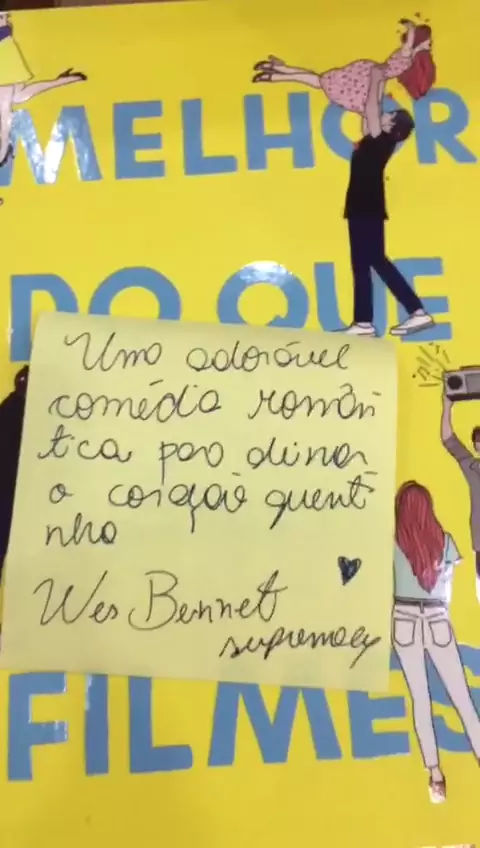 MELHOR
DO QUE
Uma adorável
comédia român
tica para deixar
o coração quenti
nho
Wes Bennet
supremacy
FILMES